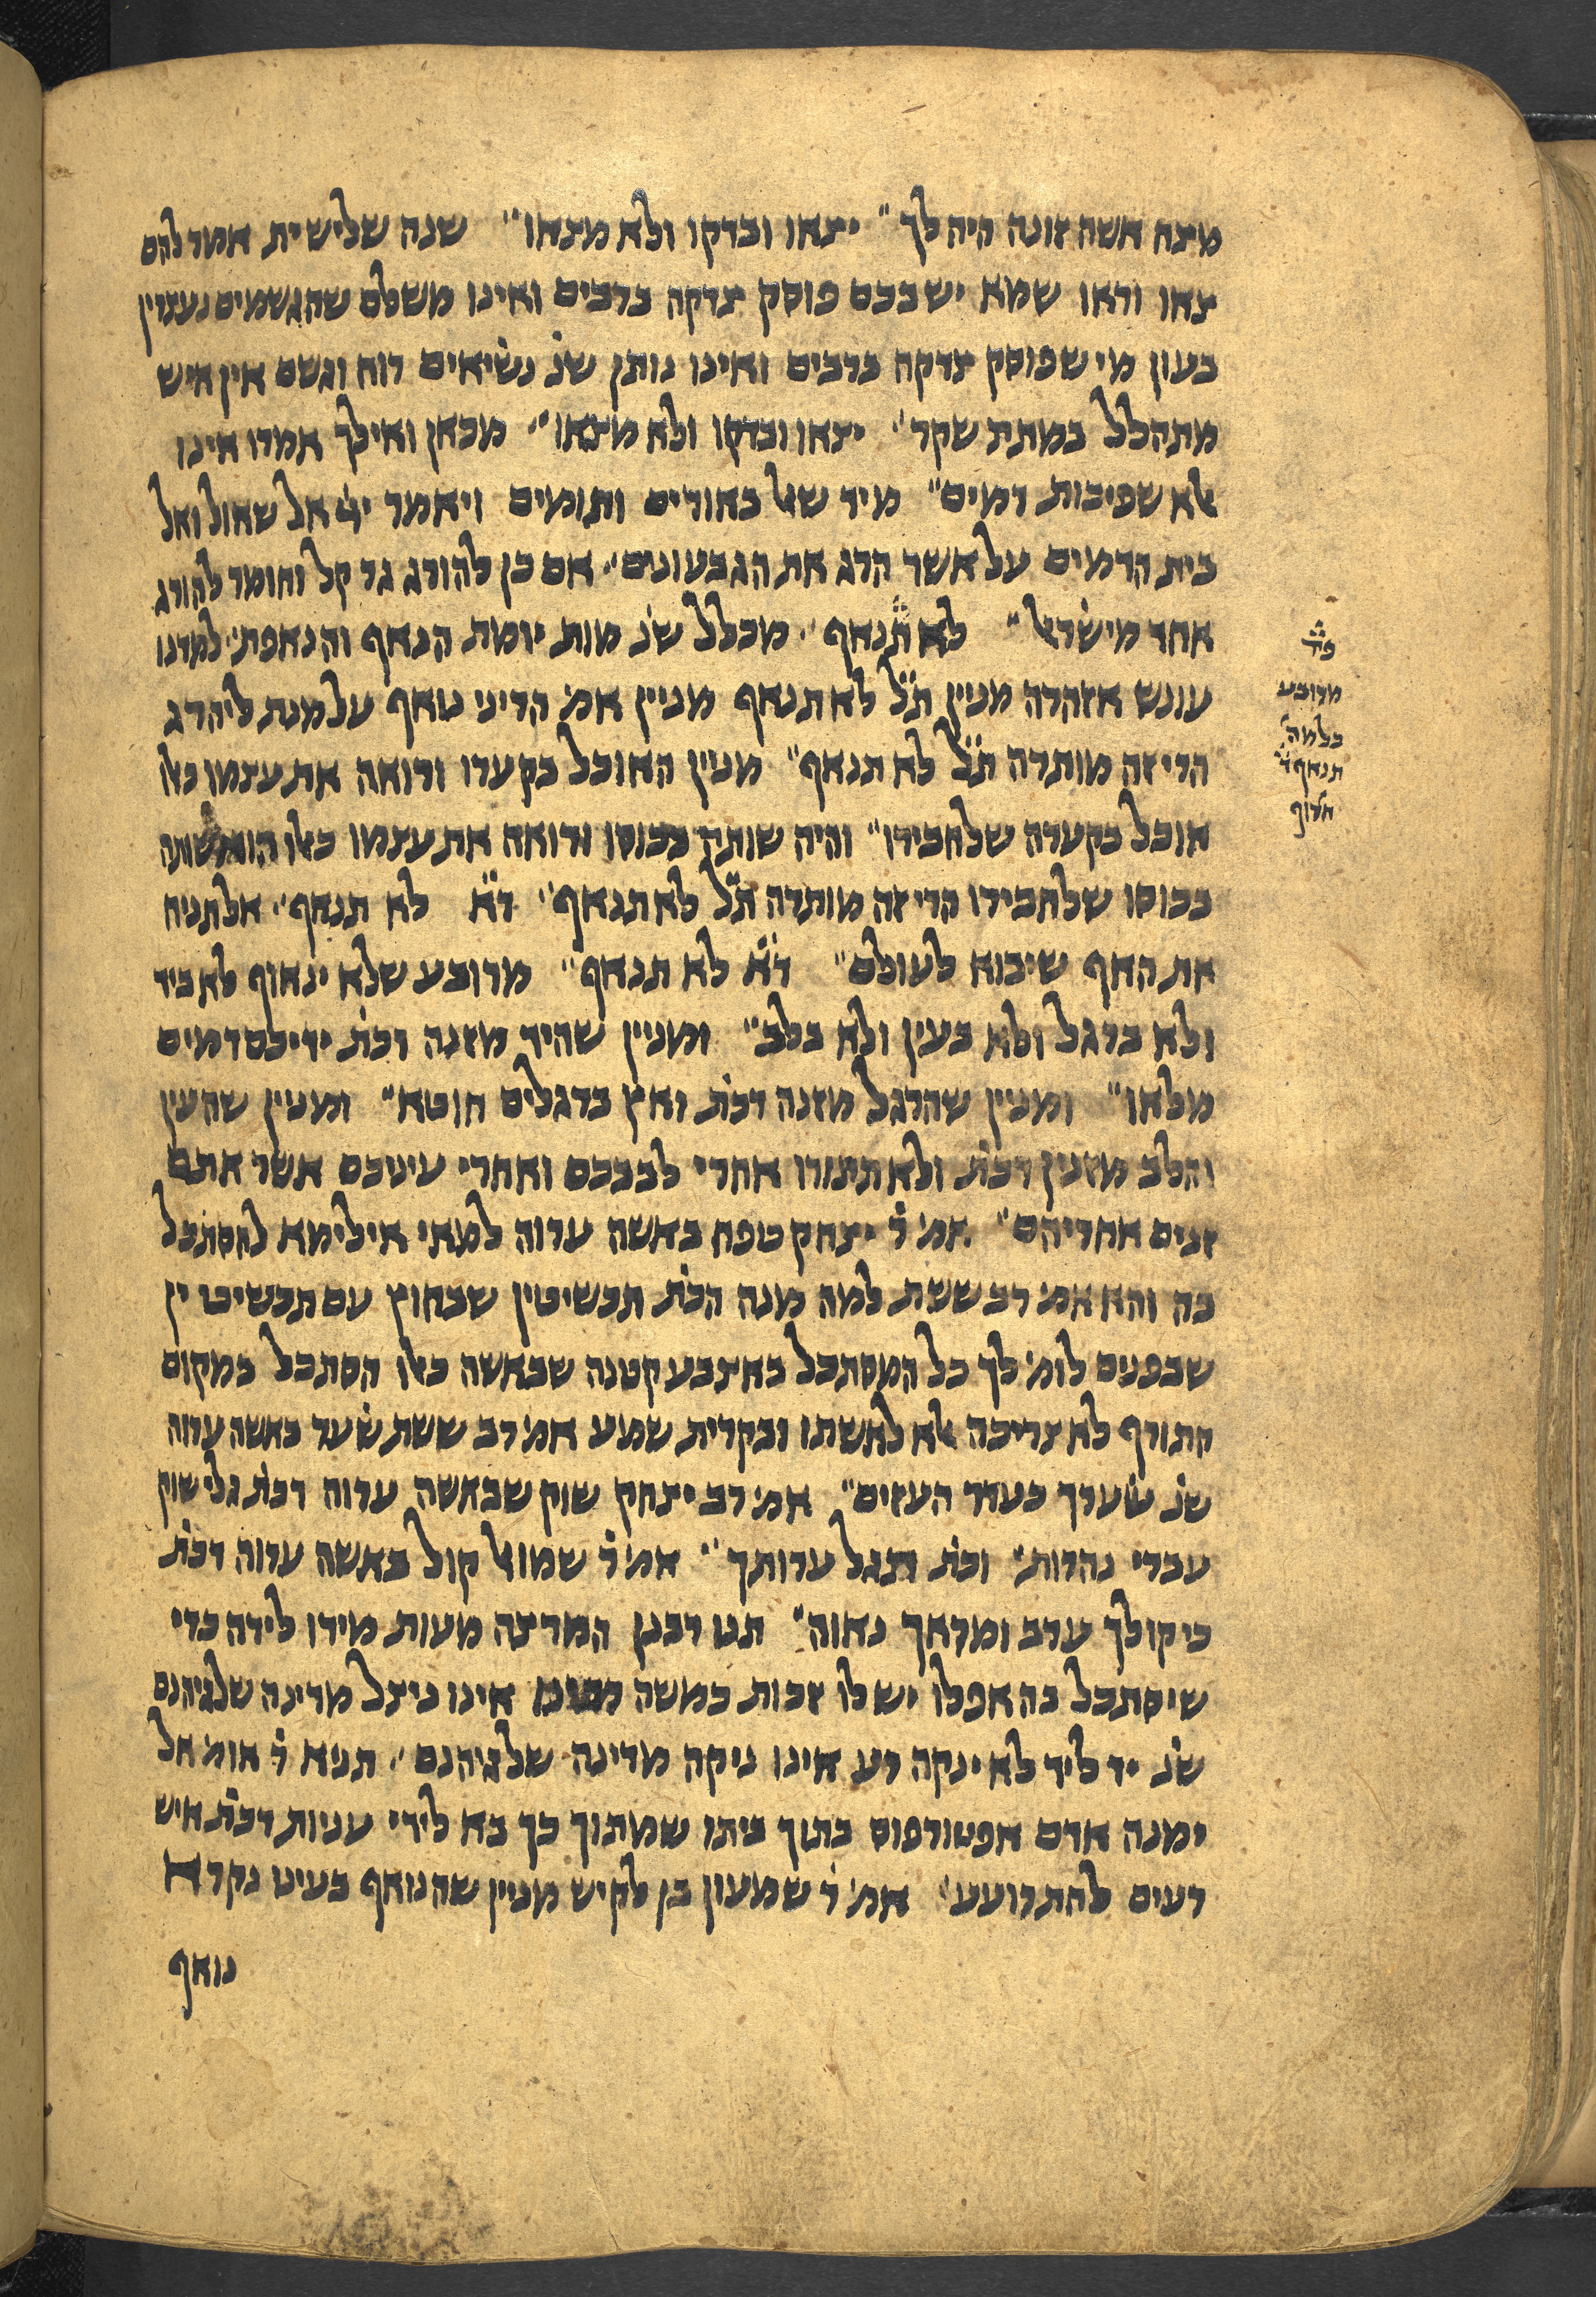 מצח אשה זונה היה לך״ יצאו ובדקו ולא מצאו״ שנה שלישית אמר להם
צאו וראו שמא יש בכם פוסק צדקה ברבים ואינו משלם שהגשמים נעצרין
בעון מי שפוסק צדקה ברבים ואינו נותן שנ׳ נשיאים רוח וגשם אין איש
מתהלל במתת שקר״ יצאו ובדקו ולא מצאו״ מכאן ואילך אמרו אינו
אלא שפיכות דמים״ מיד שאל באורים ותומים ויאמר ייי אל שאול ואל
בית הדמים על אשר הרג את הגבעונים״ אם כן להורג גר קל וחומר להורג
אחד מישראל״ לא תנאף״ מכלל שנ׳ מות יומת הנאף והנאפת״ למדנו
עונש אזהרה מניין ת״ל לא תנאף מניין אמ׳ הריני נואף על מנת ליהרג
הרי זה מותרה ת״ל לא תנאף״ מניין האוכל בקערו ורואה את עצמו כאלו
אוכל בקערה שלחבירו״ והיה שותה בכוסו ורואה את עצמו כאלו הוא שותה
בכוסו שלחבירו הרי זה מותרה ת״ל לא תנאף״ ד״א לא תנאף״ אל תניח
את האף שיבוא לעולם״ ד״א לא תנאף״ מרובע שלא ינאוף לא ביד
ולא ברגל ולא בעין ולא בלב״ ומניין שהיד מזנה דכת׳ ידיכם דמים
מלאו״ ומניין שהרגל מזנה דכת׳ ואץ ברגלים חוטא״ ומניין שהעין
והלב מזנין דכת׳ ולא תתורו אחרי לבבכם ואחרי עיניכם אשר אתם
זנים אחריהם״ אמ׳ ר׳ יצחק טפח באשה ערוה למאי אילימא להסתכל
בה והא אמ׳ רב ששת למה מנה הכת׳ תכשיטין שבחוץ עם תכשיטין
שבפנים לומ׳ לך כל המסתכל באצבע קטנה שבאשה כאלו הסתכל במקום
התורף לא צריכה אלא לאשתו ובקרית שמע אמ׳ רב ששת שער באשה ערוה
שנ׳ שערך כעדר העזים״ אמ׳ רב יצחק שוק שבאשה ערוה דכת׳ גלי שוק
עברי נהרות״ וכת׳ תגל ערותך״ אמ׳ ר׳ שמואל קול באשה ערוה דכת׳
כי קולך ערב ומראך נאוה״ תנו רבנן המרצה מעות מידו לידה כדי
שיסתכל בה אפלו יש לו זכות כמשה אינו ניצל מדינה שלגיהנם
שנ׳ יד ליד לא ינקה רע אינו ניקה מדינה שלגיהנם״ תניא ר׳ אומ׳ אל
ימנה אדם אפטורפוס בתוך ביתו שמתוך כך בא לידי עניות דכת׳ איש
רעים להתרועע״ אמ׳ ר׳ שמעון בן לקיש מניין שהנואף בעינו נקרא
נואף
מרובע
כלמה
תנאף